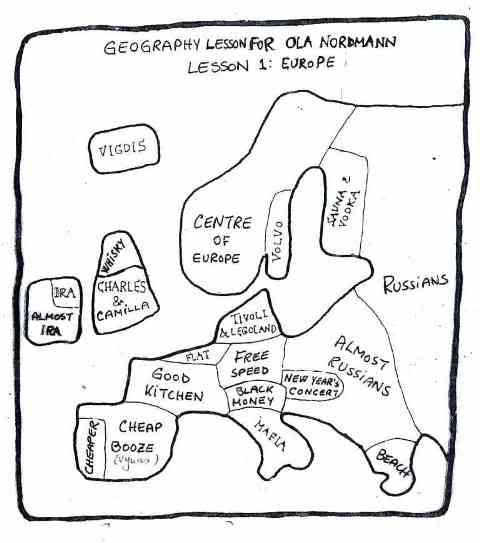 GEOGRAPHY LESSON FOR OLA NORDMANN
LESSON 1: EUROPE
VIGDIS
WHISKY
CHARLES
&
CAMILLA
IRA
ALMOST
IRA
CENTRE
OF
EUROPE
VOLVO
SAUNA &
VODKA
RUSSIANS
TIVOLI
& LEGOLAND
FLAT
FREE
SPEED
ALMOST
RUSSIANS
GOOD
KITCHEN
BLACK
MONEY
NEW YEAR'S
CONCERT
MAFIA
CHEAPER
CHEAP
BOOZE
BEACH